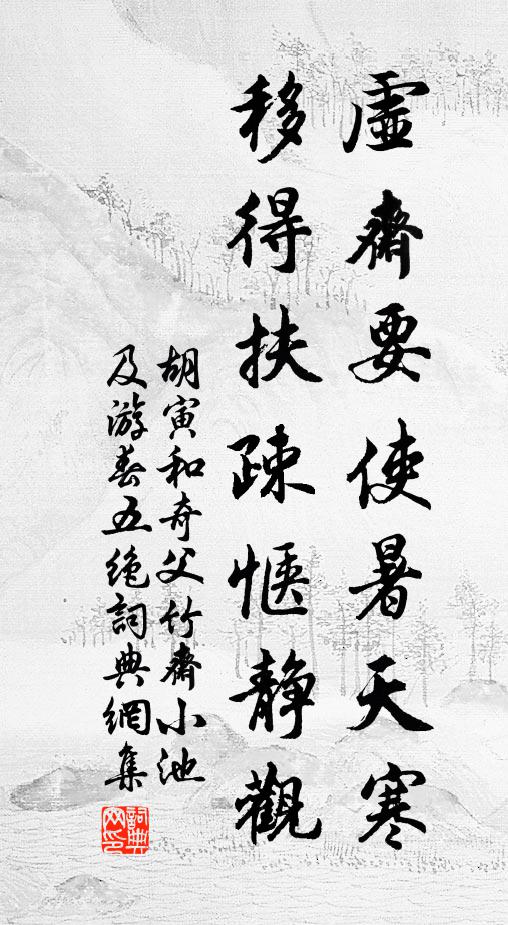 虛齋要使暑天寒
移得扶疎愜靜觀
胡寅和奇父竹齋小池
及游春五絕詞典網集
詞典
网印